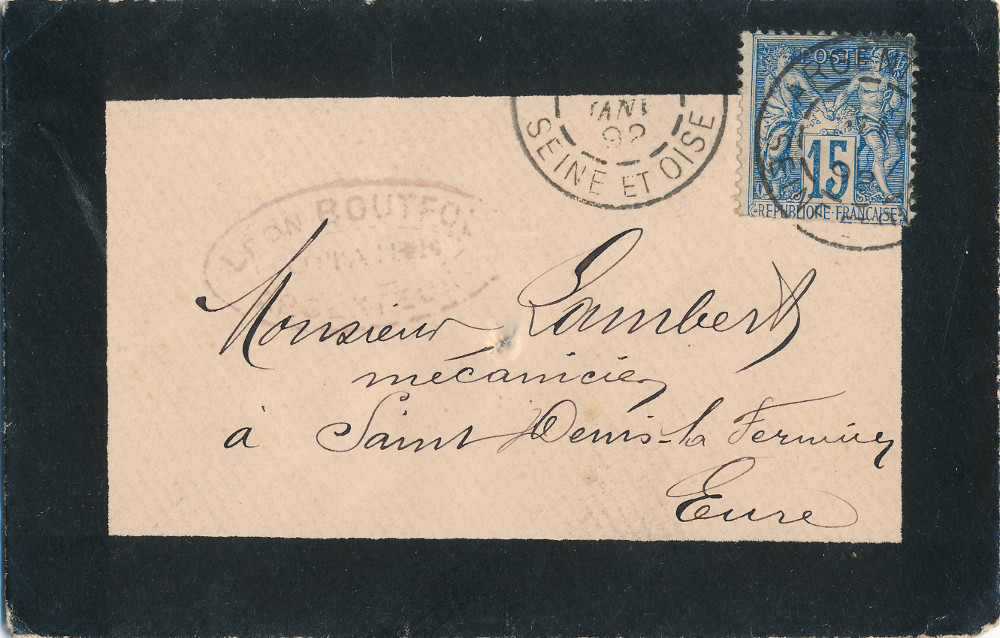 JANV
92
SEINE ET OISE
POSTE
15
REPUBLIQUE FRANÇAISE
LEON
Monsieur Lambert
mécanicien
à Saint Denis-la Fermière
Eure